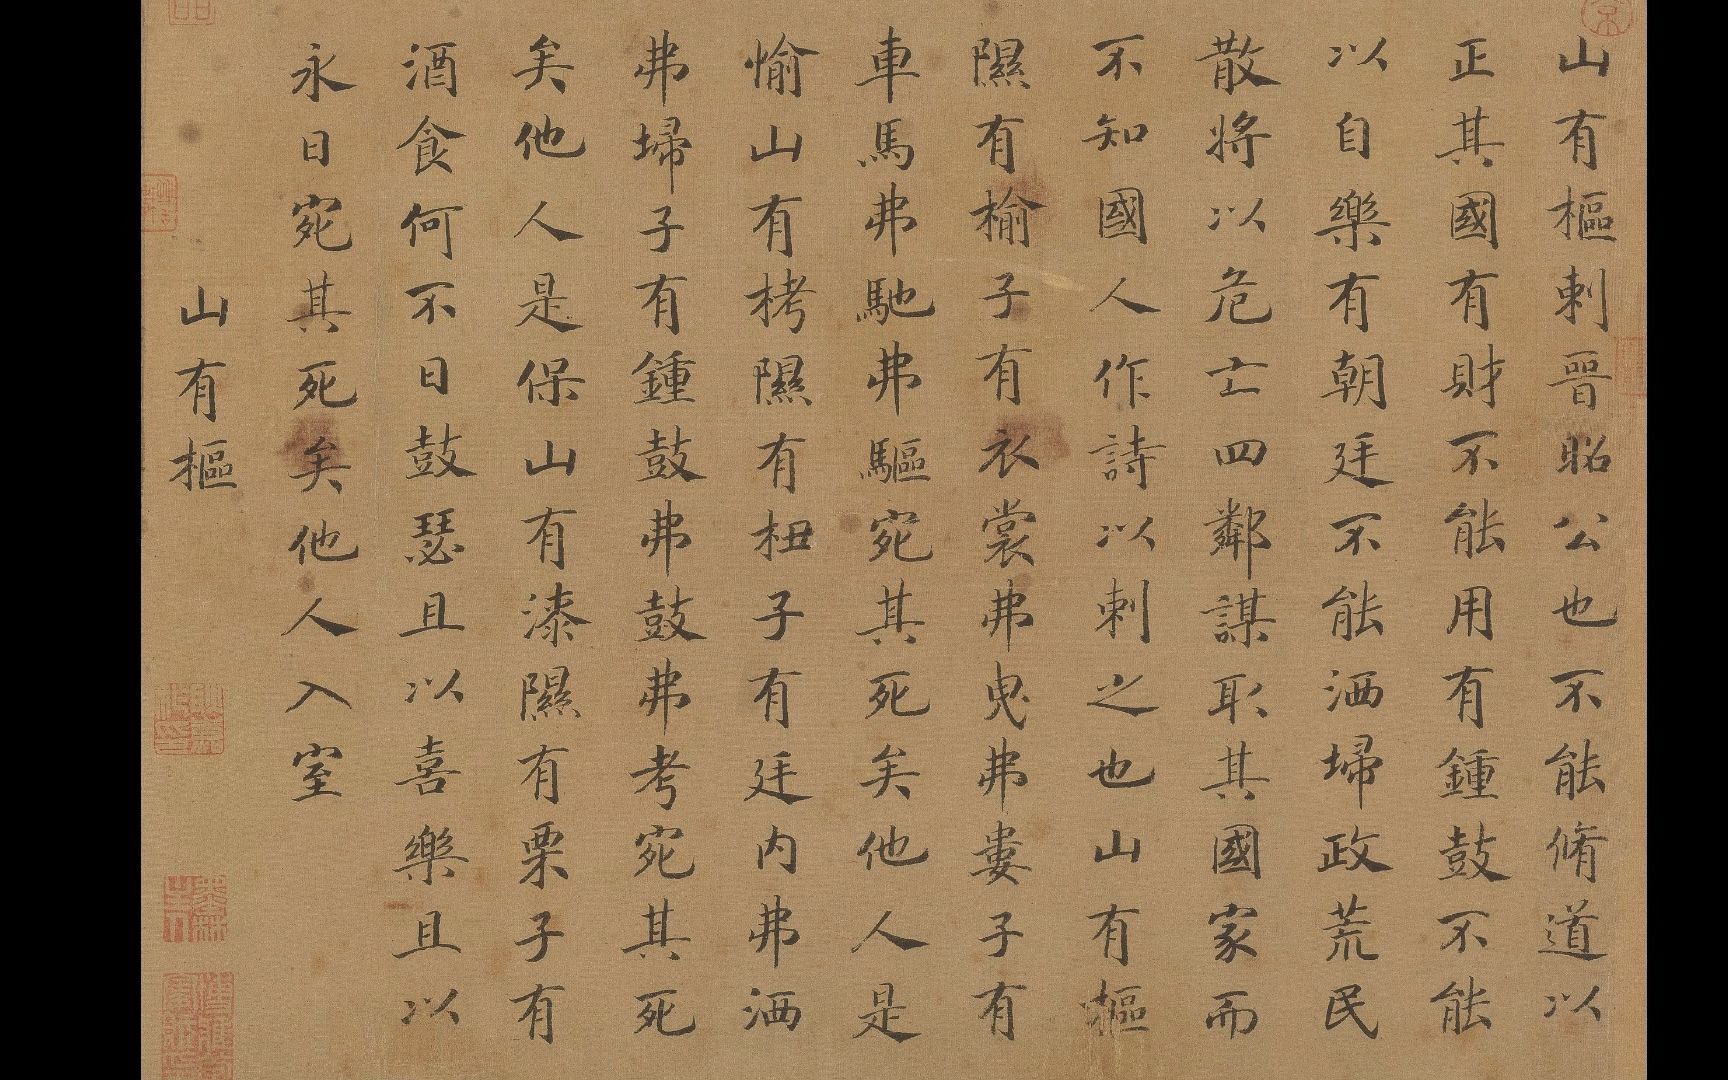 山有樞刺晉昭公也不能脩道以
正其國有財不能用有鍾鼓不能
以自樂有朝廷不能洒埽政荒民
散將以危亡四鄰謀取其國家而
不知國人作詩以刺之也山有樞
隰有榆子有衣裳弗曳弗婁子有
車馬弗馳弗驅宛其死矣他人是
愉山有栲隰有杻子有廷内弗洒
弗埽子有鍾鼓弗鼓弗考宛其死
矣他人是保山有漆隰有栗子有
酒食何不日鼓瑟且以喜樂且以
永日宛其死矣他人入室
山有樞